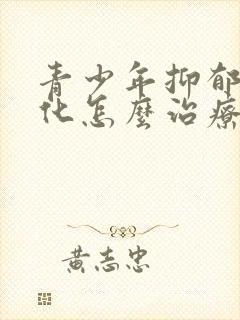 青少年抑郁
化怎麼治療
黃志忠